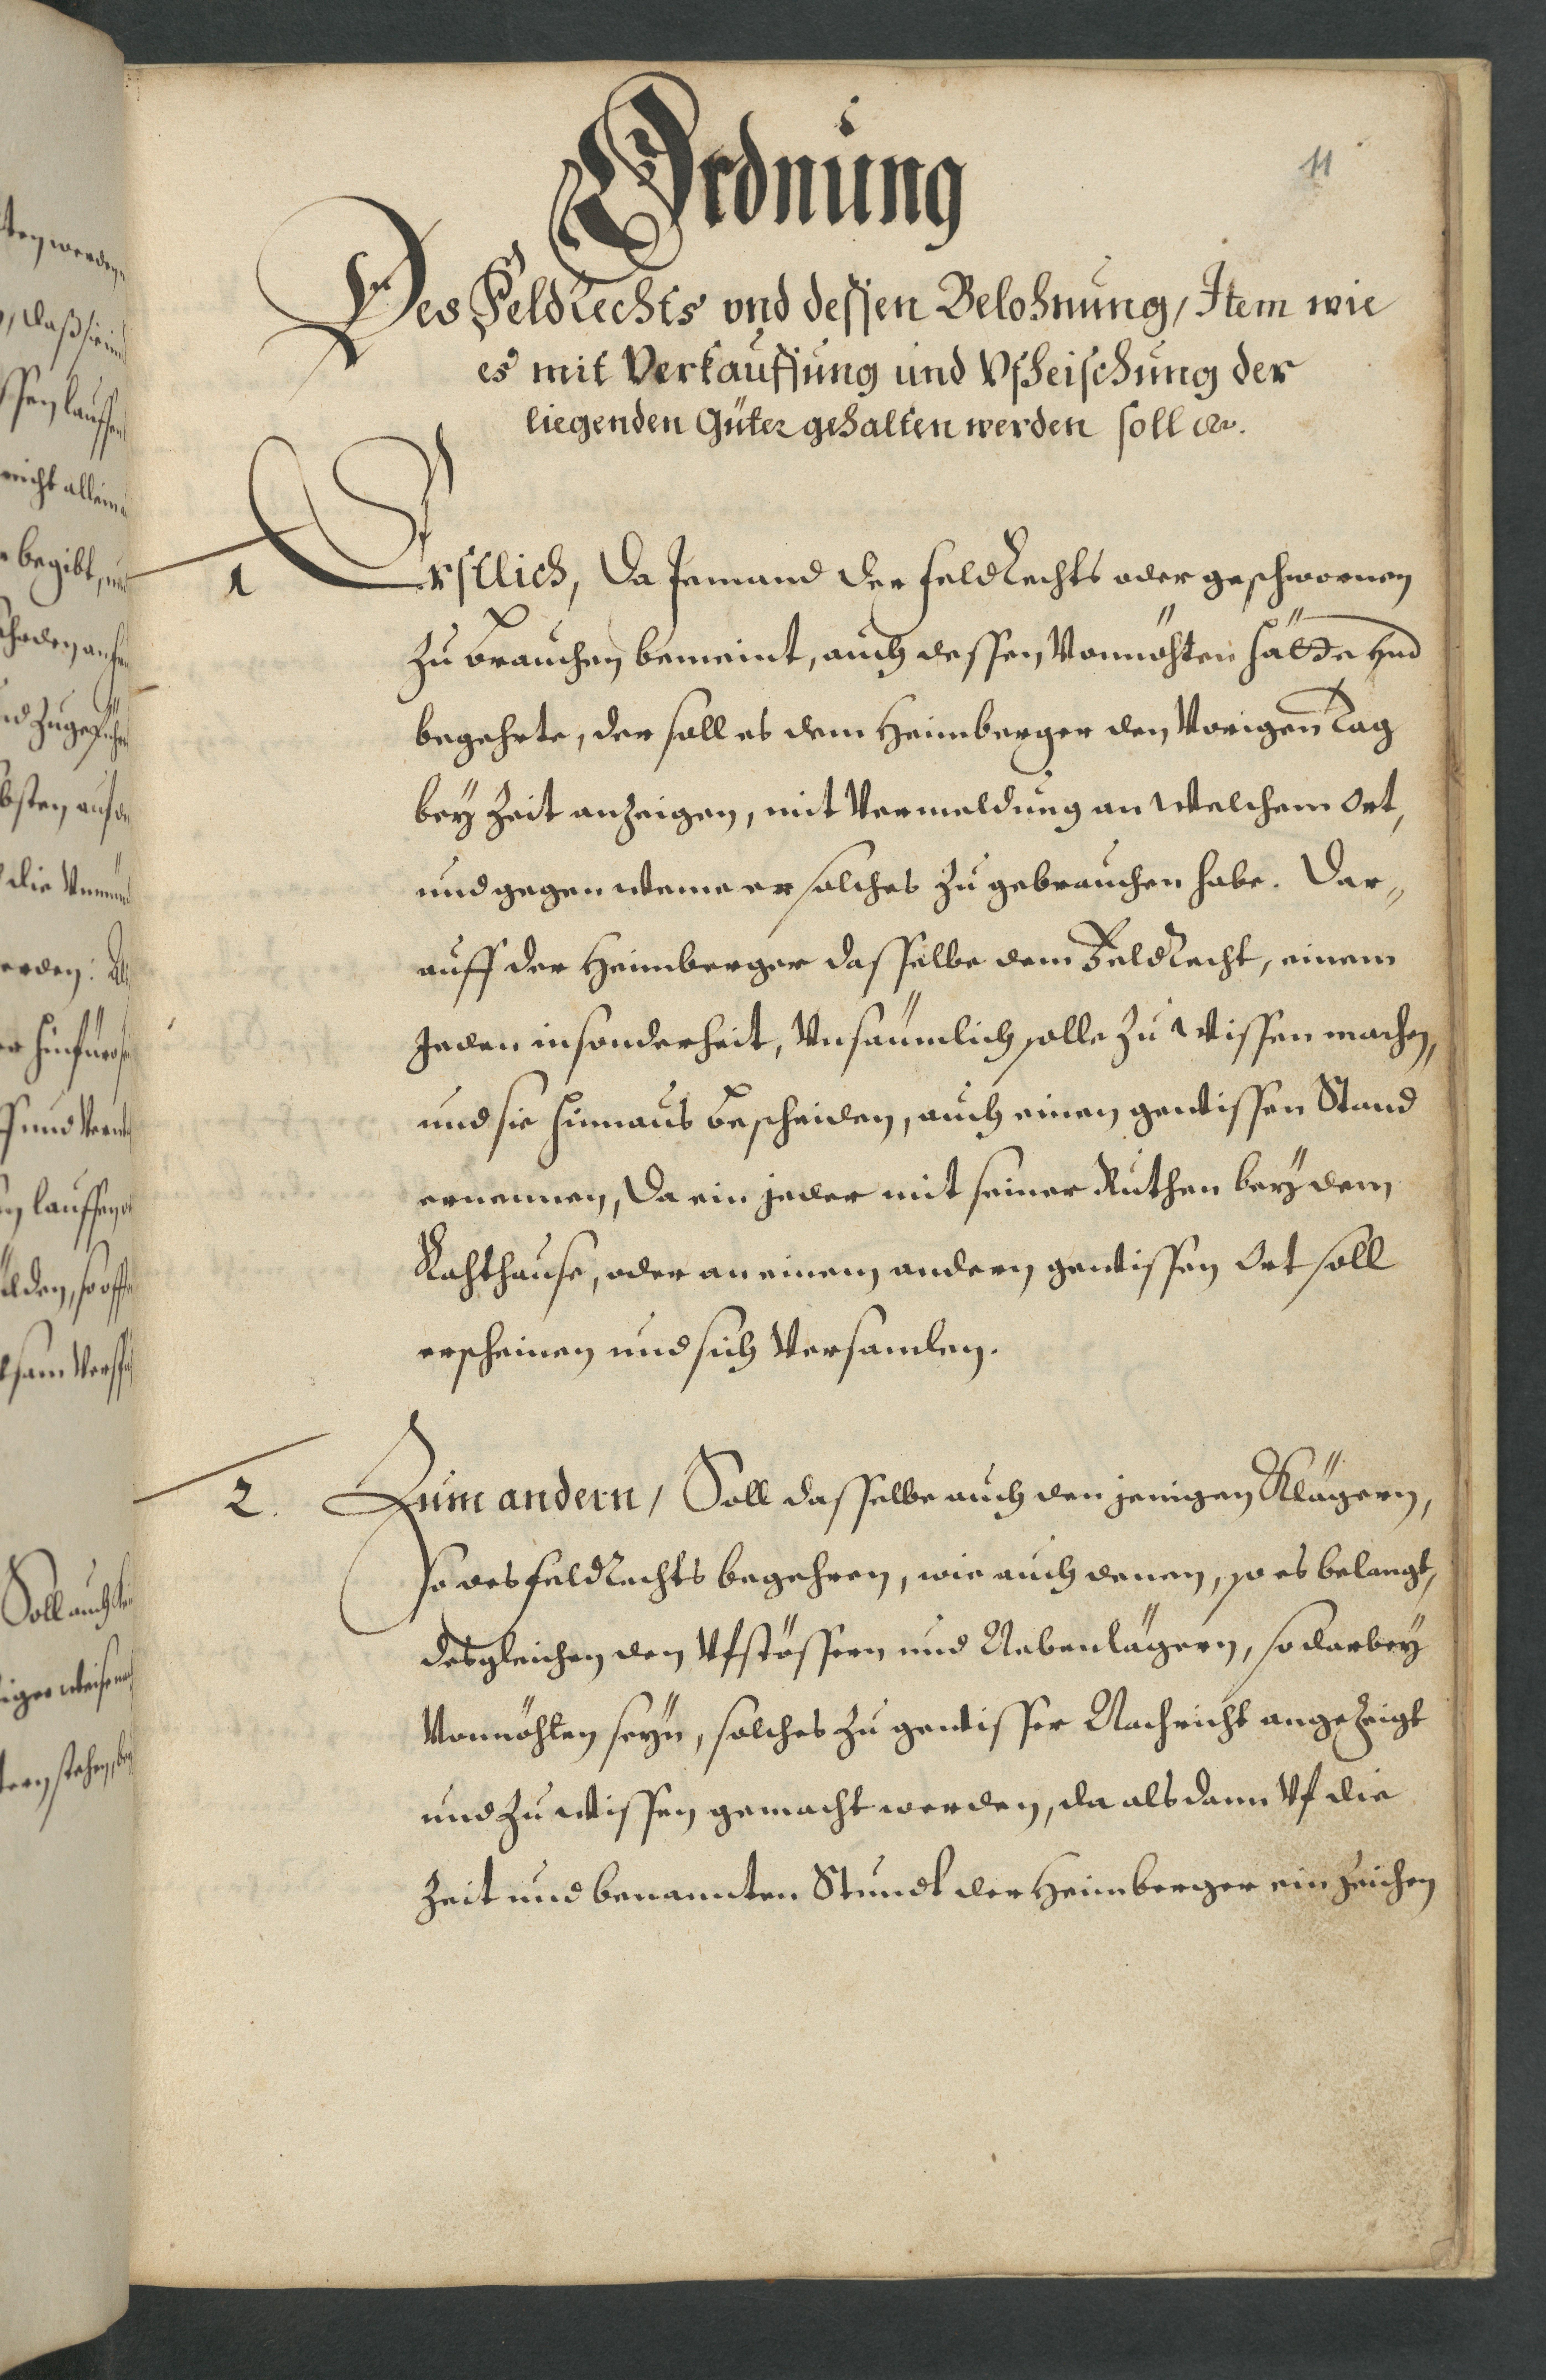 11
Ordnung
Des Feldrechts vnd dessen Belohnung, Item wie
es mit Verkauffung und Vfheischung der
liegenden Güter gehalten werden soll etc.
1 Erstlich, Da Jemand der FeldRechts oder geschwornen
zu brauchen bemeint, auch dessen Vonnöhten hätte und
begehrte, der soll es dem Heimberger den Vorigen Tag
bey Zeit anzeigen, mit Vermeldung an welchem Ort,
und gegen weme er solches zu gebrauchen habe. Dar„
auff der Heimberger dasselbe dem FeldRecht, einem
Jeden insonderheit, Unsäumlich solle zu wissen machen,
und sie hinnaus bescheiden, auch einen gewissen Stand
ernennen, Da ein jeder mit seiner Ruthen bey dem
Rahthause, oder an einem andern gewissen Ort soll
erscheinen und sich Versamlen.
2. Zum andern, Soll dasselbe auch den jenigen Klägern,
so des FeldRechts begehren, wie auch denen, so es belangt,
desgleichen den Vfstössern und Nebenlägern, so darbey
Vonnöhten seyn, solches zu gewisser Nachricht angezeigt
und zu wissen gemacht werden, da alsdann Vf die
Zeit und benannten Stundt der Heimberger ein Zeichen
ten werden
, daß sie in
ssen lauffen
nicht allein
begibt, und
Schaden
nd zugefüh
bsten auf
die
erden:
hinfüro
und
lauffen
ülden, so offt
Soll auch
stehen, bey